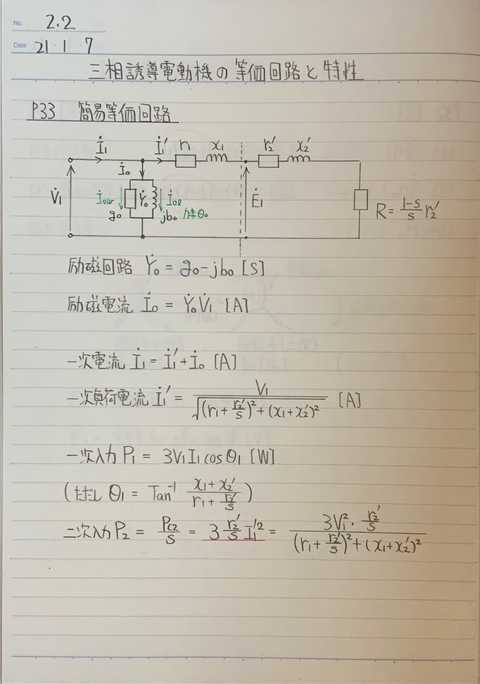 No. 2.2
Date 21・1・7
三相誘導電動機の等価回路と特性
P33 簡易等価回路
İ₁ İ₁' r₁ x₁ r₂' x₂'
İ₀
V̇₁ Ẏ₀ Ė₁ R = (1-s)/s r₂'
g₀ jb₀
励磁回路 Ẏ₀ = g₀ - jb₀ [S]
励磁電流 İ₀ = Ẏ₀V̇₁ [A]
一次電流 İ₁ = İ₁' + İ₀ [A]
一次負荷電流 İ₁' = V₁ / √((r₁ + r₂'/s)² + (x₁ + x₂')²) [A]
一次入力 P₁ = 3V₁I₁cosθ₁ [W]
(ただし θ₁ = Tan⁻¹ (x₁ + x₂') / (r₁ + r₂'/s))
二次入力 P₂ = Pc₂/s = 3 r₂'/s I₁'² = 3V₁²・r₂'/s / ((r₁ + r₂'/s)² + (x₁ + x₂')²)